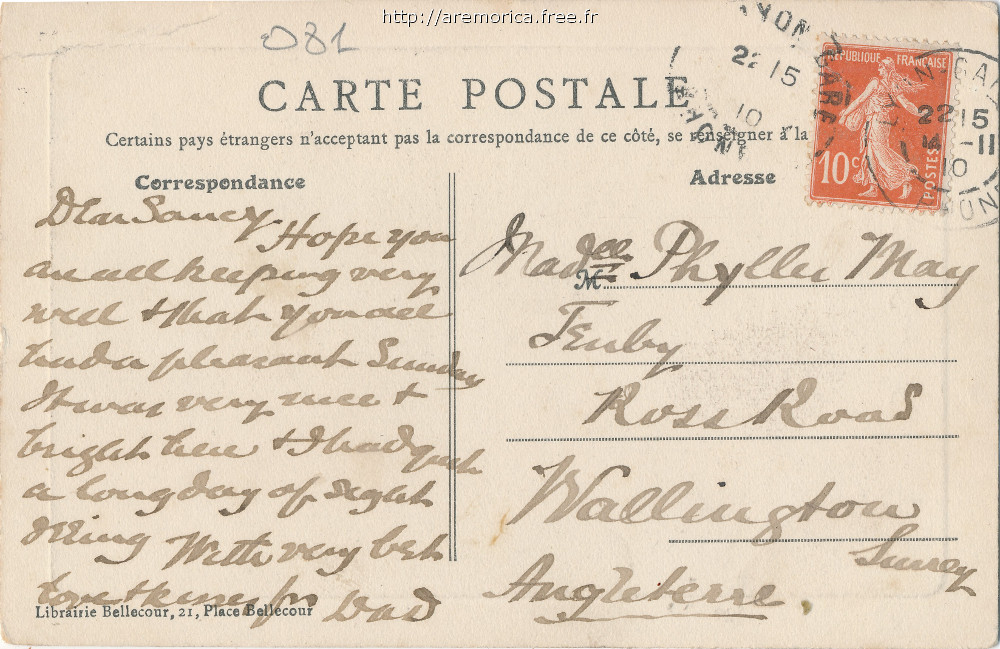 http://aremorica.free.fr
081
CARTE POSTALE
Certains pays étrangers n'acceptant pas la correspondance de ce côté, se renseigner à la
Correspondance
Dear Saucy
Hope you
are all keeping very
well & that you all
had a pleasant Sunday
It was very nice &
bright here & I had quite
a long day of sight
seeing With very best
love & kisses from Dad
Librairie Bellecour, 21, Place Bellecour
Adresse
Madelle Phyllis May
M
Tenby
Ross Road
Wallington
Surrey
Angleterre
RÉPUBLIQUE FRANÇAISE
10c
POSTES
22 15
10
GARE
RHONE
22 15
-11
10